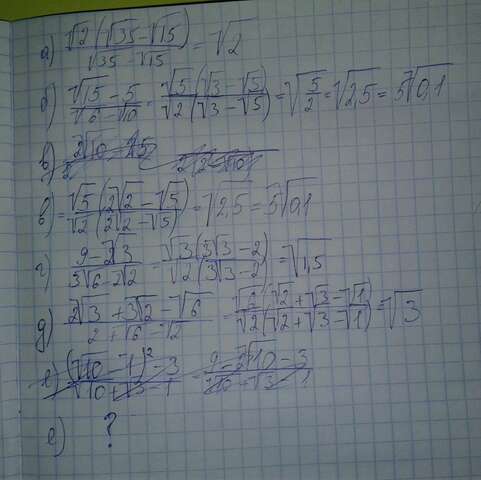 а) √2(√35-√15)/√35-√15 = √2
б) √15-5/√6-√10 = √5(√3-√5)/√2(√3-√5) = √5/2 = √2,5 = 5√0,1
в) 2√10-5
в) = √5(2√2-√5)/√2(2√2-√5) = √2,5 = 5√0,1
г) 9-2√3/3√6-2√2 = √3(3√3-2)/√2(3√3-2) = √1,5
д) 2√3+3√2-√6/2+√6-√2 = √6(√2+√3-√1)/√2(√2+√3-√1) = √3
е) (√10-1)²-3/√10+√3-1 = 9-2√10-3
е) ?